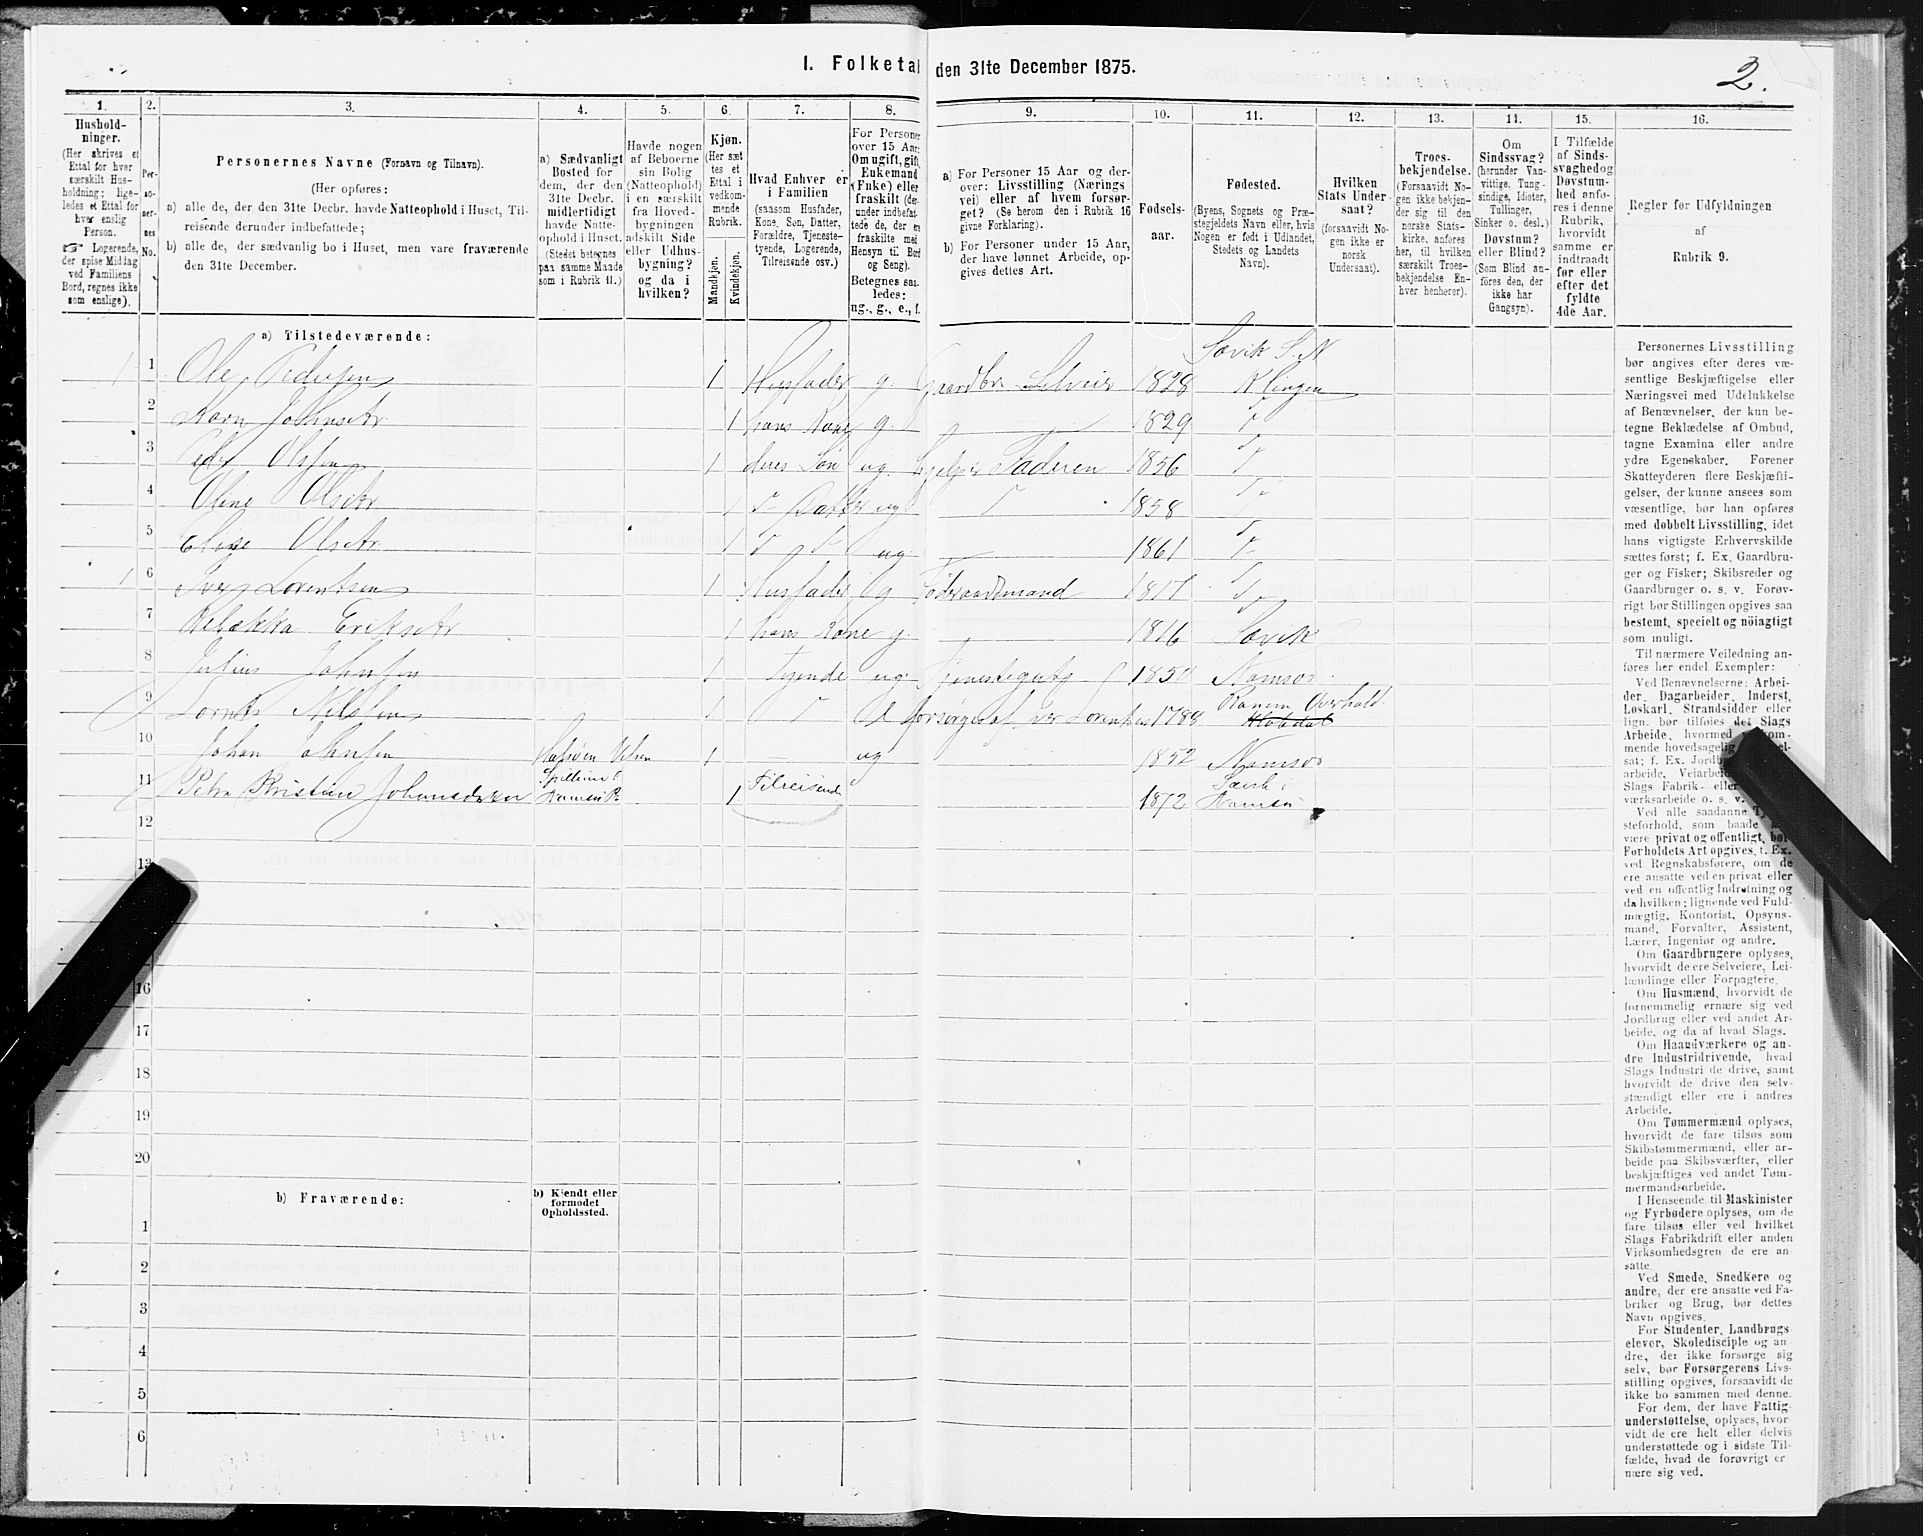 1. Folketal den 31te December 1875.
2.
1. 2. 3. 4. 5. 6. 7. 8. 9. 10. 11. 12. 13. 11. 15. 16.
Hushold-
ninger.
(Her skrives et
Ettal for hver
særskilt Hus-
holdning; lige-
ledes et Ettal for
hver enslig
Person.
☞ Logerende,
der spise Middag
ved Familiens
Bord, regnes ikke
som enslige).
Per-
so-
ner-
nes
No.
Personernes Navne (Fornavn og Tilnavn).
(Her opføres:
a) alle de, der den 31te Decbr. havde Natteophold i Huset, Til-
reisende derunder indbefattede;
b) alle de, der sædvanlig bo i Huset, men vare fraværende
den 31te December.
a) Sædvanligt
Bosted for
dem, der den
31te Decbr.
midlertidigt
havde Natte-
ophold i Huset.
(Stedet betegnes
paa samme Maade
som i Rubrik 11.)
Havde nogen
af Beboerne
sin Bolig
(Natteophold)
i en særskilt
fra Hoved-
bygningen
adskilt Side
eller Udhus-
bygning?
og da i
hvilken?
Kjøn.
(Her sæt
tes et
Ettal i
vedkom-
mende
Rubrik.
Mandkjøn.
Kvindekjøn.
Hvad Enhver er
i Familien
(saasom Husfader,
Kone, Søn, Datter,
Forældre, Tjeneste-
tyende, Logerende,
Tilreisende osv.)
For Personer
over 15 Aar:
Om ugift, gift,
Enkemand
(Enke) eller
fraskilt (der-
under indbefat-
tede de, der ere
fraskilte med
Hensyn til Bord
og Seng).
Betegnes saa-
ledes:
ug., g., e., f.
a) For Personer 15 Aar og der-
over: Livsstilling (Nærings
vei) eller af hvem forsør-
get? (Se herom den i Rubrik 16
givne Forklaring).
b) For Personer under 15 Aar,
der have lønnet Arbeide, op-
gives dettes Art.
Fødsels-
aar.
Fødested.
(Byens, Sognets og Præ-
stegjeldets Navn eller, hvis
Nogen er født i Udlandet,
Stedets og Landets
Navn).
Hvilken
Stats Under-
saat?
(forsaavidt No-
gen ikke er
norsk
Undersaat).
Troes-
bekjendelse.
(Forsaavidt No-
gen ikke bekjen-
der sig til den
norske Stats-
kirke, anføres
her, til hvilken
særskilt Troes-
bekjendelse En-
hver henhører).
Om
Sindssvag?
(herunder Van-
vittige, Tung-
sindige, Idioter,
Tullinger,
Sinker o. desl.)
Døvstum?
eller Blind?
(Som Blind an-
føres den, der
ikke har
Gangsyn).
I Tilfælde
af Sinds-
svaghed og
Døvstum-
hed anfø-
res i denne
Rubrik,
hvorvidt
samme er
indtraadt
før eller
efter det
fyldte
4de Aar.
Regler for Udfyldningen
af
Rubrik 9.
a) Tilstedeværende:
1 1 Ole Pedersen 1 Husfader g. Gaardbr. Selveier 1828 Sævik S. N Klingen
2 Karn Johnsdtr 1 hans Kone g. 1829
3 Peder Olssen 1 deres Søn ug. hjelper Faderen 1856
4 Oline Olsdtr 1 Datter ug 1858
5 Elise Olsdtr 1 ug 1861
1 6 Iver Lorentsen 1 Husfader g Føderaadsmand 1817
7 Rebækka Eriksdtr 1 hans Kone g. 1816 Sævik
8 Julius Johnsen 1 Tyende ug. Tjenestegut 1850 Namsos
9 Lornts Nilssen 1 E forsørges af Iver Lorentsen 1788 Ranem Overhald
10 Johan Johnsen 1 ug 1852 Namsos
11 Petra Kristine Johannesdatter 1 Tilreisende 1872 Sævik i Namsos
12
13
16
17
18
19
20
b) Fraværende:
b) Kjendt eller
formodet
Opholdssted.
1
2
3
4
5
6
Personernes Livsstilling
bør angives efter deres væ-
sentlige Beskjæftigelse eller
Næringsvei med Udelukkelse
af Benævnelser, der kun be-
tegne Beklædelse af Ombud,
tagne Examina eller andre
ydre Egenskaber. Forener
Skatteyderen flere Beskjæfti-
gelser, der kunne ansees som
væsentlige, bør han opføres
med dobbelt Livsstilling, idet
hans vigtigste Erhvervskilde
sættes først; f. Ex. Gaardbru-
ger og Fisker; Skibsreder og
Gaardbruger o. s. v. Forøv-
rigt bør Stillingen opgives saa
bestemt, specielt og nöiagtigt
som muligt.
Til nærmere Veiledning an-
føres her endel Exempler:
Ved Benævnelserne: Arbei-
der, Dagarbeider, Inderst,
Løskarl, Strandsidder eller
lign. bør tilføies det Slags
Arbeide, hvormed
mende hovedsagelig
sat; f. Ex.
arbeide, Veiarbeide,
Slags Fabrik- eller
værksarbeide o. s. v.
Ved alle saadanne
steforhold, som baade
være privat og offentligt, bør
Forholdets Art opgives, f. Ex.
ved Regnskabsførere, om de
ere ansatte ved en privat eller
ved en offentlig Indretning og
da hvilken; lignende ved Fuld-
mægtig, Kontorist, Opsyns-
mand, Forvalter, Assistent,
Lærer, Ingeniør og andre.
Om Gaardbrugere oplyses,
hvorvidt de ere Selveiere, Lei-
lændinge eller Forpagtere.
Om Husmænd, hvorvidt de
fornemmelig ernære sig ved
Jordbrug eller ved andet Ar-
beide, og da af hvad Slags.
Om Haandværkere og an-
dre Industridrivende, hvad
Slags Industri de drive, samt
hvorvidt de drive den selv-
stændigt eller ere i andres
Arbeide.
Om Tømmermænd oplyses,
hvorvidt de fare tilsøs som
Skibstømmermænd, eller ar-
beide paa Skibsværfter, eller
beskjæftiges ved andet Tøm-
mermandsarbeide.
I Henseende til Maskinister
og Fyrbødere oplyses, om de
fare tilsøs eller ved hvilket
Slags Fabrikdrift eller anden
Virksomhedsgren de ere an-
satte.
Ved Smede, Snedkere og
andre, der ere ansatte ved Fa-
briker og Brug, bør dettes
Navn opgives.
For Studenter, Landbrugs
elever, Skoledisciple og an-
dre, der ikke forsørge sig
selv, bør Forsørgerens Livs-
stilling opgives, forsaavidt de
ikke bo sammen med denne.
For dem, der have Fattig-
understøttelse, oplyses, hvor-
vidt de ere helt eller delvis
understøttede og i sidste Til-
fælde, hvad de forøvrigt er
nære sig ved.